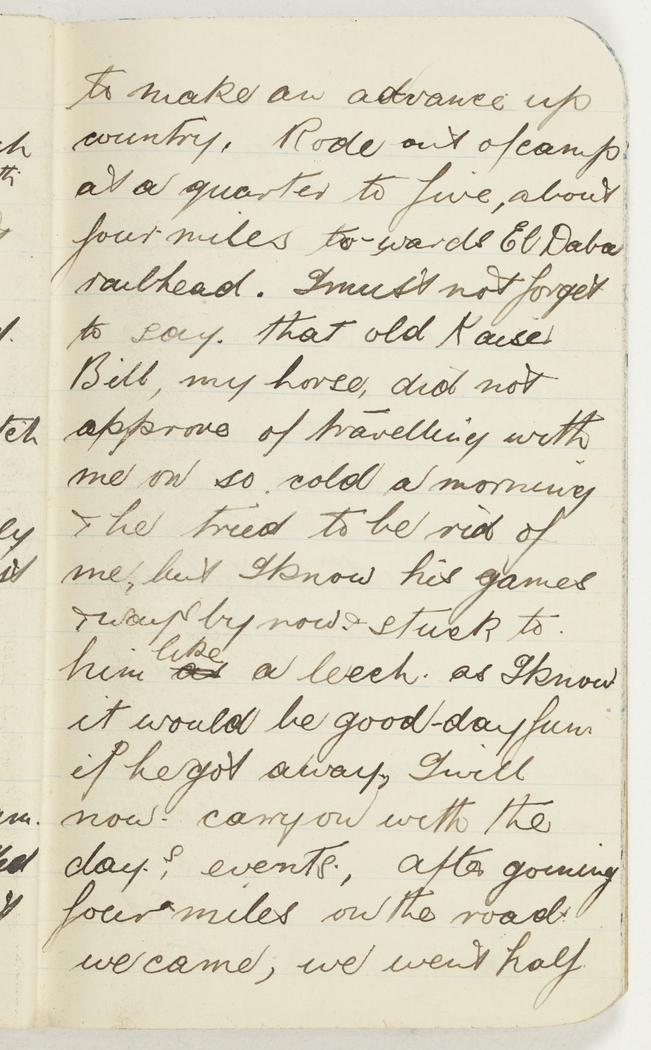 to make an advance up
country. Rode out of camp
at a quarter to five, about
four miles to-wards El Daba
railhead. I must not forget
to say. that old Kaiser
Bill, my horse, did not
approve of travelling with
me on so cold a morning
& he tried to be rid of
me, but I know his games
& ways by now & stuck to
him like a leech. as I know
it would be good-day
if he got away, I will
now carry on with the
day's events, after goining
four miles on the road
we came, we went half